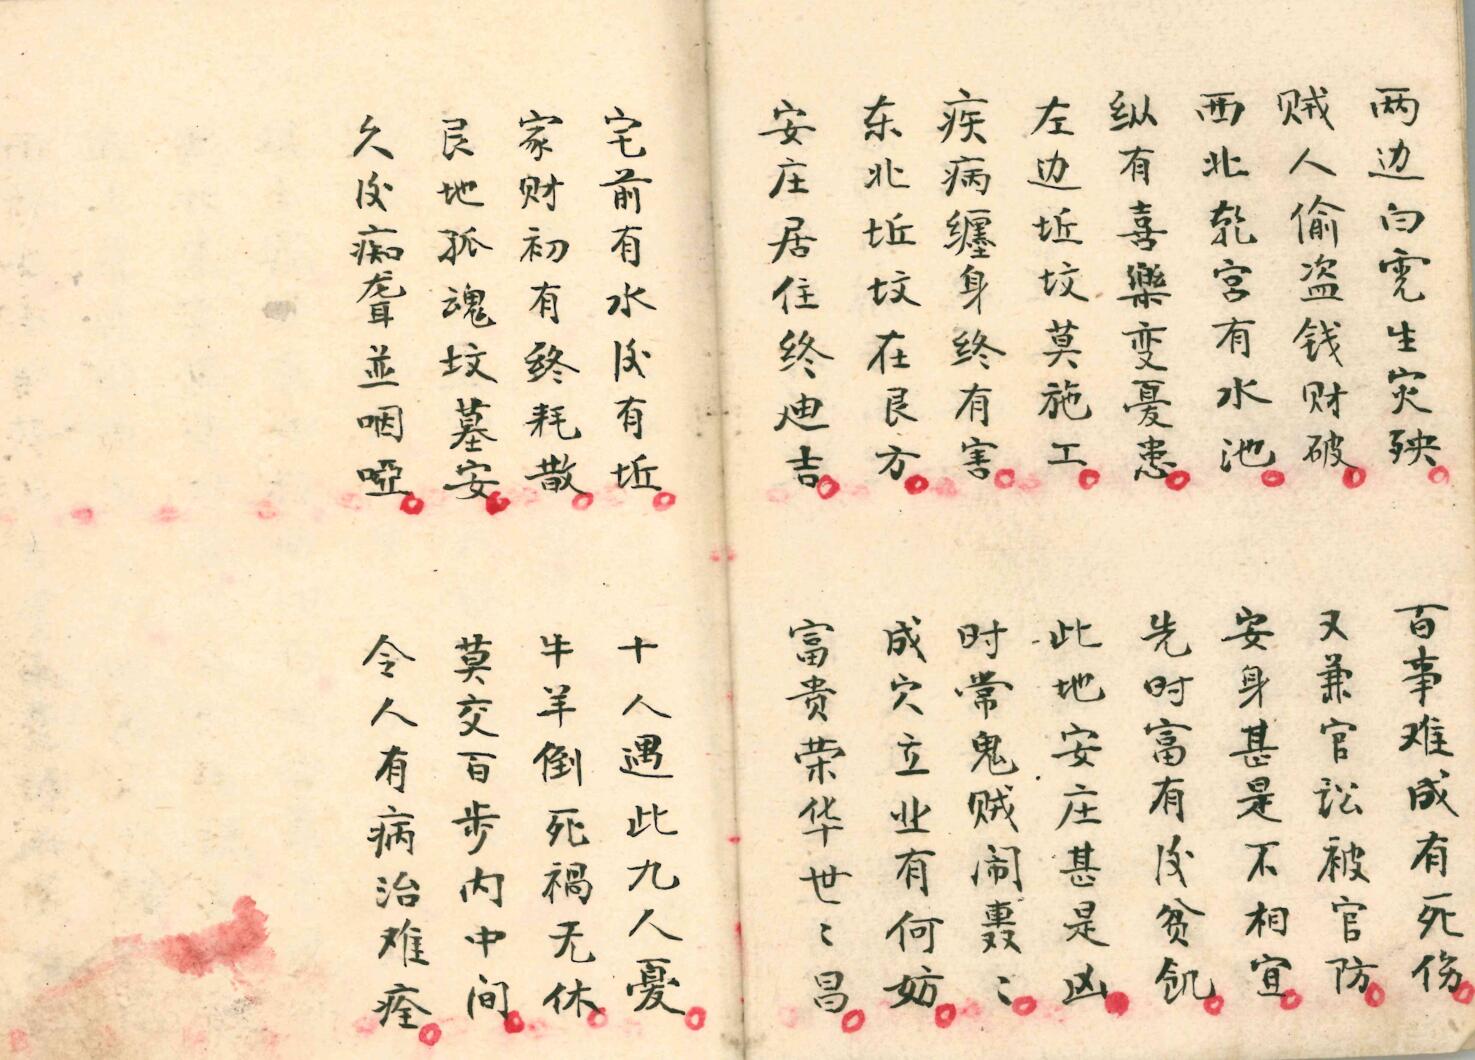 两边白虎生灾殃
百事难成有死伤
贼人偷盗钱财破
又兼官讼被官防
西北乾宫有水池
安身甚是不相宜
纵有喜樂变憂患
先时富有後贫飢
左边坵坟莫施工
此地安庄甚是凶
疾病缠身终有害
时常鬼贼闹轰〻
东北坵坟在艮方
成穴立业有何妨
安庄居住终迪吉
富贵荣华世〻昌
宅前有水後有坵
十人遇此九人憂
家财初有终耗散
牛羊倒死禍无休
艮地孤魂坟墓安
莫交百步内中间
久後痴聋並咽啞
令人有病治难痊